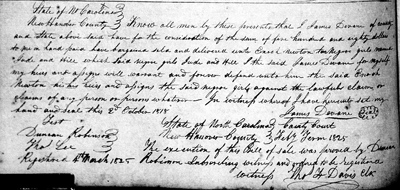 State of N Carolina
New Hanover County } Know all men by these presents that I James Devane of county
and State above said have for the consideration of the sum of four hundred and eighty dollars
to me in hand paid have bargained sold and delivered unto Enoch Newton two Negro girls named
Jude and Hill which said negro girls Jude and Hill I the said James Devane for myself
my heirs and assigns will warrant and forever defend unto him the said Enoch
Newton his heirs and assigns the said negro girls against the lawful claim or
claims of any person or persons whatever. In witness whereof I have hereunto set my
hand and seal this 2d October 1818
James Devane Seal
Test
Duncan Robinson
Thos Lee
State of North Carolina } County Court
New Hanover County } Feby Term 1825
The execution of this Bill of sale was proved by Duncan
Registered March 1825 Robinson Subscribing witness and ordered to be registered
witness Thos F Davis Clk